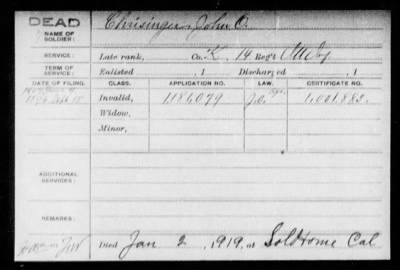 DEAD
NAME OF SOLDIER: Chrisinger, John O.
SERVICE: Late rank, Co. K, 14 Reg't
TERM OF SERVICE: Enlisted , 1 Discharged , 1
DATE OF FILING. CLASS. APPLICATION NO. LAW. CERTIFICATE NO.
Invalid, 1181,079 1,001,883.
Widow,
Minor,
ADDITIONAL SERVICES:
REMARKS:
Died Jan 2, 1919, at Sol Home Cal